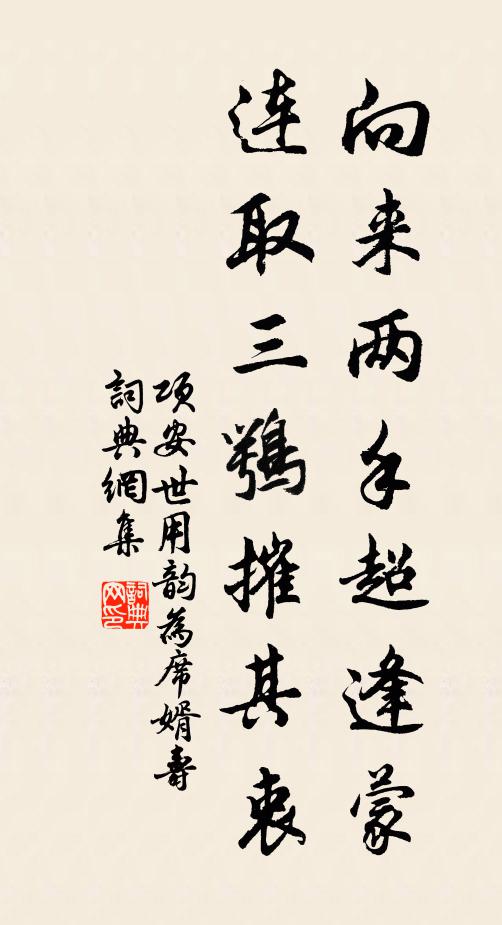 向来两手超逢蒙
连取三鶚摧其衷
项安世用韵為席婿壽
詞典網集
詞典网印